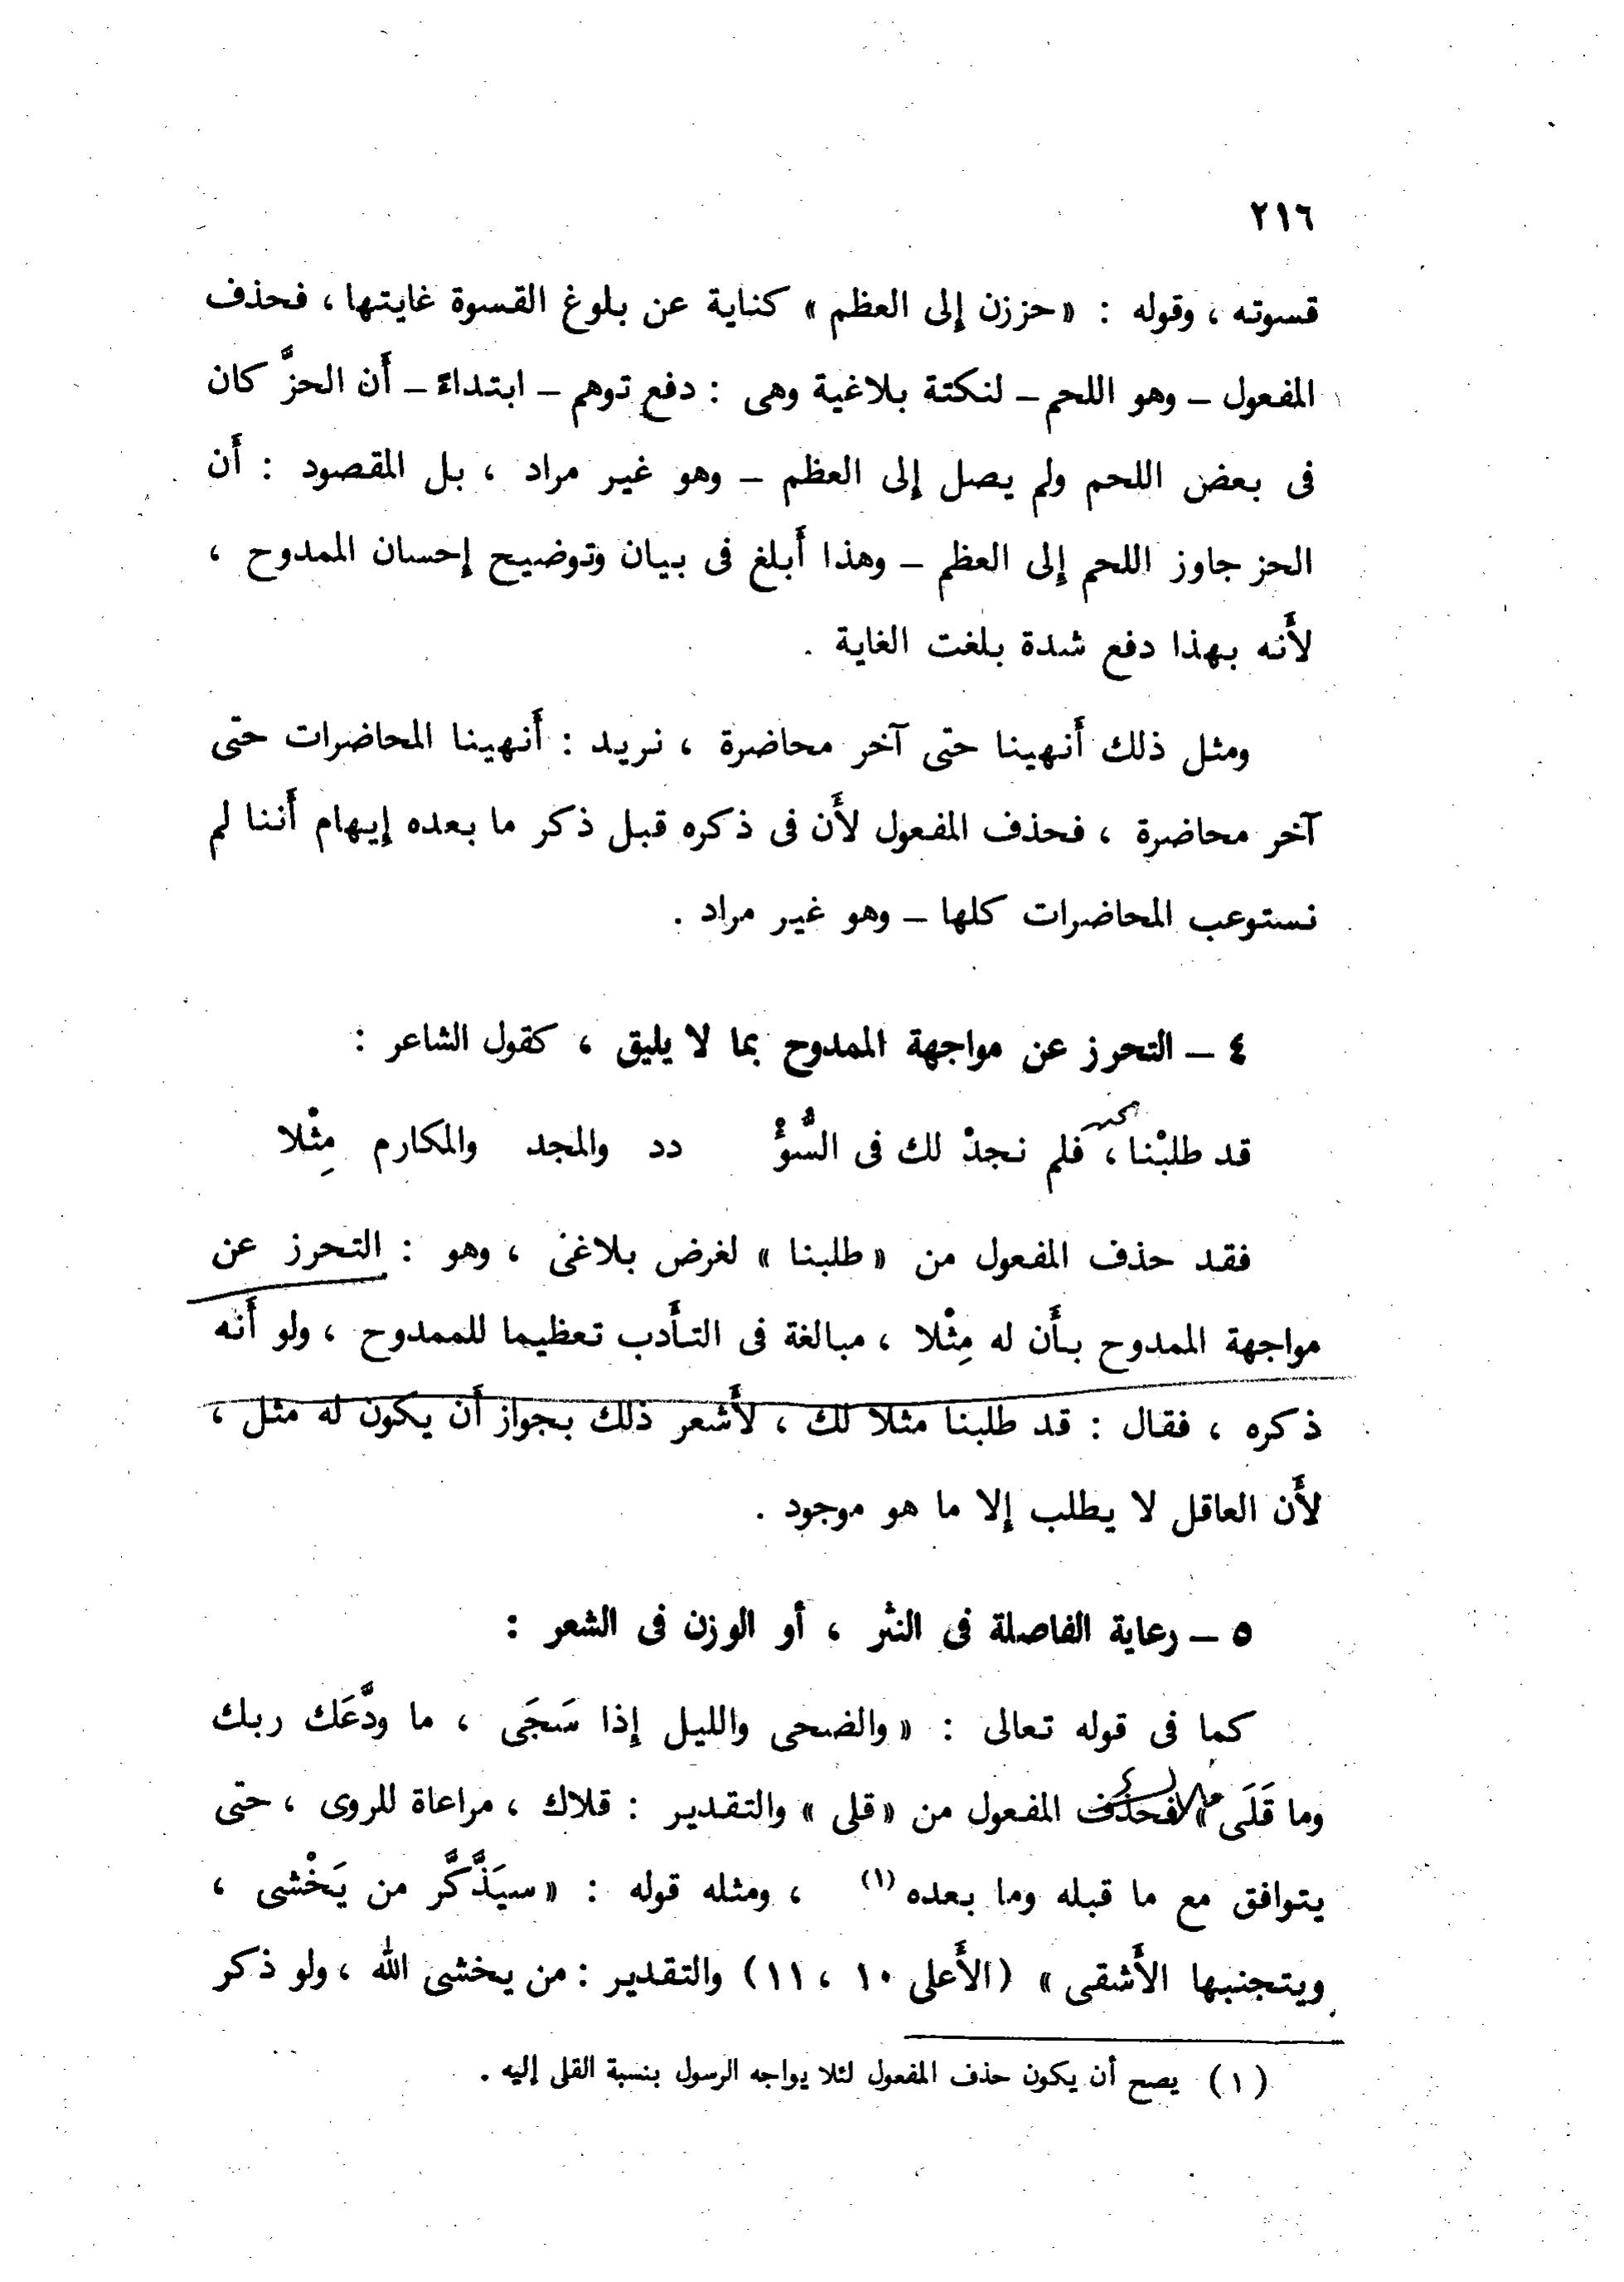 ٢١٦
قسوته ، وقوله : « حززن إلى العظم » كناية عن بلوغ القسوة غايتها ، فحذف
المفعول ــ وهو اللحم ــ لنكتة بلاغية وهى : دفع توهم ــ ابتداءً ــ أَن الحزَّ كان
فى بعض اللحم ولم يصل إلى العظم ــ وهو غير مراد ، بل المقصود : أَن
الحز جاوز اللحم إلى العظم ــ وهذا أَبلغ فى بيان وتوضيح إحسان الممدوح ،
لأَنه بهذا دفع شدة بلغت الغاية .
ومثل ذلك أَنهينا حتى آخر محاضرة ، نريد : أَنهينا المحاضرات حتى
آخر محاضرة ، فحذف المفعول لأَن فى ذكره قبل ذكر ما بعده إيهام أَننا لم
نستوعب المحاضرات كلها ــ وهو غير مراد .
٤ ــ التحرز عن مواجهة الممدوح بما لا يليق ، كقول الشاعر :
قد طلبْنا ، فلم نجدْ لك فى السُّؤْ دد والمجد والمكارم مِثْلا
فقد حذف المفعول من « طلبنا » لغرض بلاغى ، وهو : التحرز عن
مواجهة الممدوح بأَن له مِثْلا ، مبالغة فى التأَدب تعظيما للممدوح ، ولو أَنه
ذكره ، فقال : قد طلبنا مثلا لك ، لأَشعر ذلك بجواز أَن يكون له مثل ،
لأَن العاقل لا يطلب إلا ما هو موجود .
٥ ــ رعاية الفاصلة فى النثر ، أو الوزن فى الشعر :
كما فى قوله تعالى : « والضحى والليل إذا سَجَى ، ما ودَّعَك ربك
وما قَلَى » فحذف المفعول من « قلى » والتقدير : قلاك ، مراعاة للروى ، حتى
يتوافق مع ما قبله وما بعده (١) ، ومثله قوله : « سيَذَّكَّر من يَخْشى ،
ويتجنبها الأَشقى » (الأَعلى ١٠ ، ١١) والتقدير : من يخشى الله ، ولو ذكر
(١) يصح أن يكون حذف المفعول لئلا يواجه الرسول بنسبة القلى إليه .